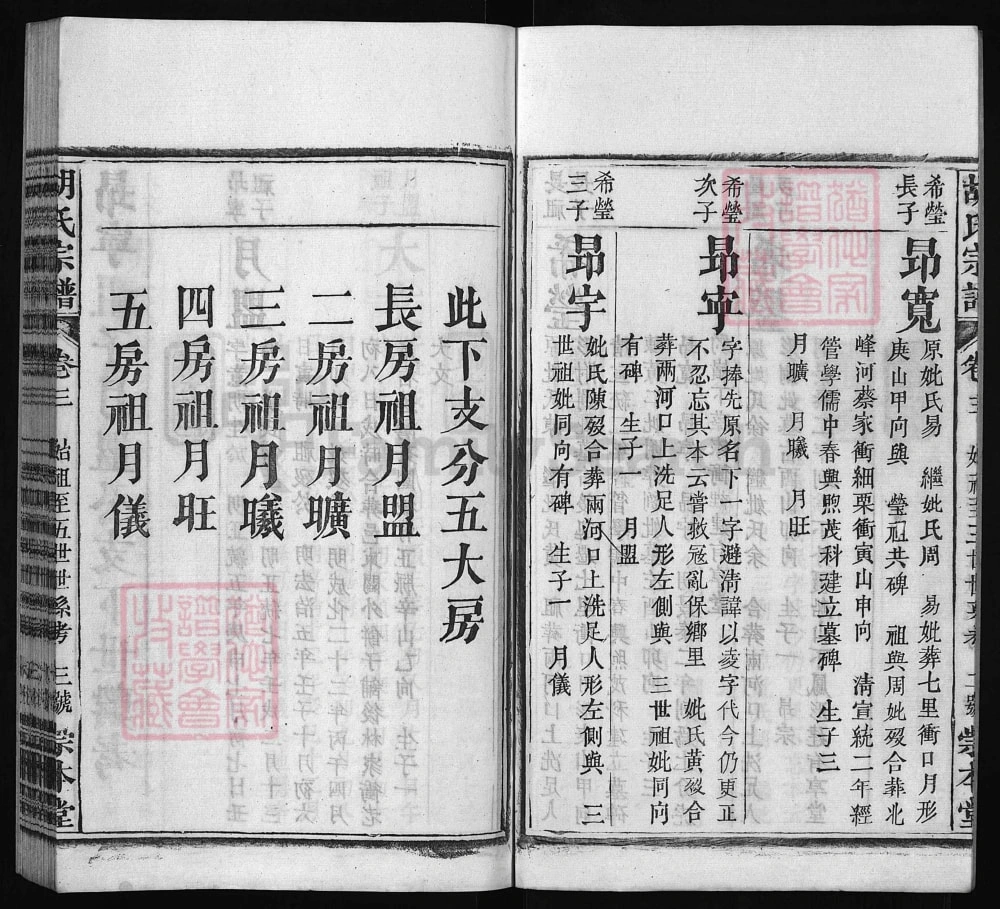 胡氏宗譜 卷三
希瑩長子
昻寬
原妣氏易 繼妣氏周 易妣葬七里衝口月形
庚山甲向與 瑩祖共碑 祖與周妣歿合葬北
峰河蔡家衝細栗衝寅山申向 清宣統二年經
管學儒中春興煦茂科建立墓碑 生子三
月曠 月曦 月旺
希瑩次子
昻寕
字捧先原名下一字避清諱以凌字代今仍更正
不忍忘其本云嘗救冦亂保鄉里 妣氏黃歿合
葬兩河口上洗足人形左側與 三世祖妣同向
有碑 生子一 月盟
希瑩三子
昻宇
妣氏陳歿合葬兩河口上洗足人形左側與 三
世祖妣同向有碑 生子一 月儀
此下支分五大房
長房祖月盟
二房祖月曠
三房祖月曦
四房祖月旺
五房祖月儀
胡氏宗譜 卷三 始祖至五世世系考 三號 崇本堂